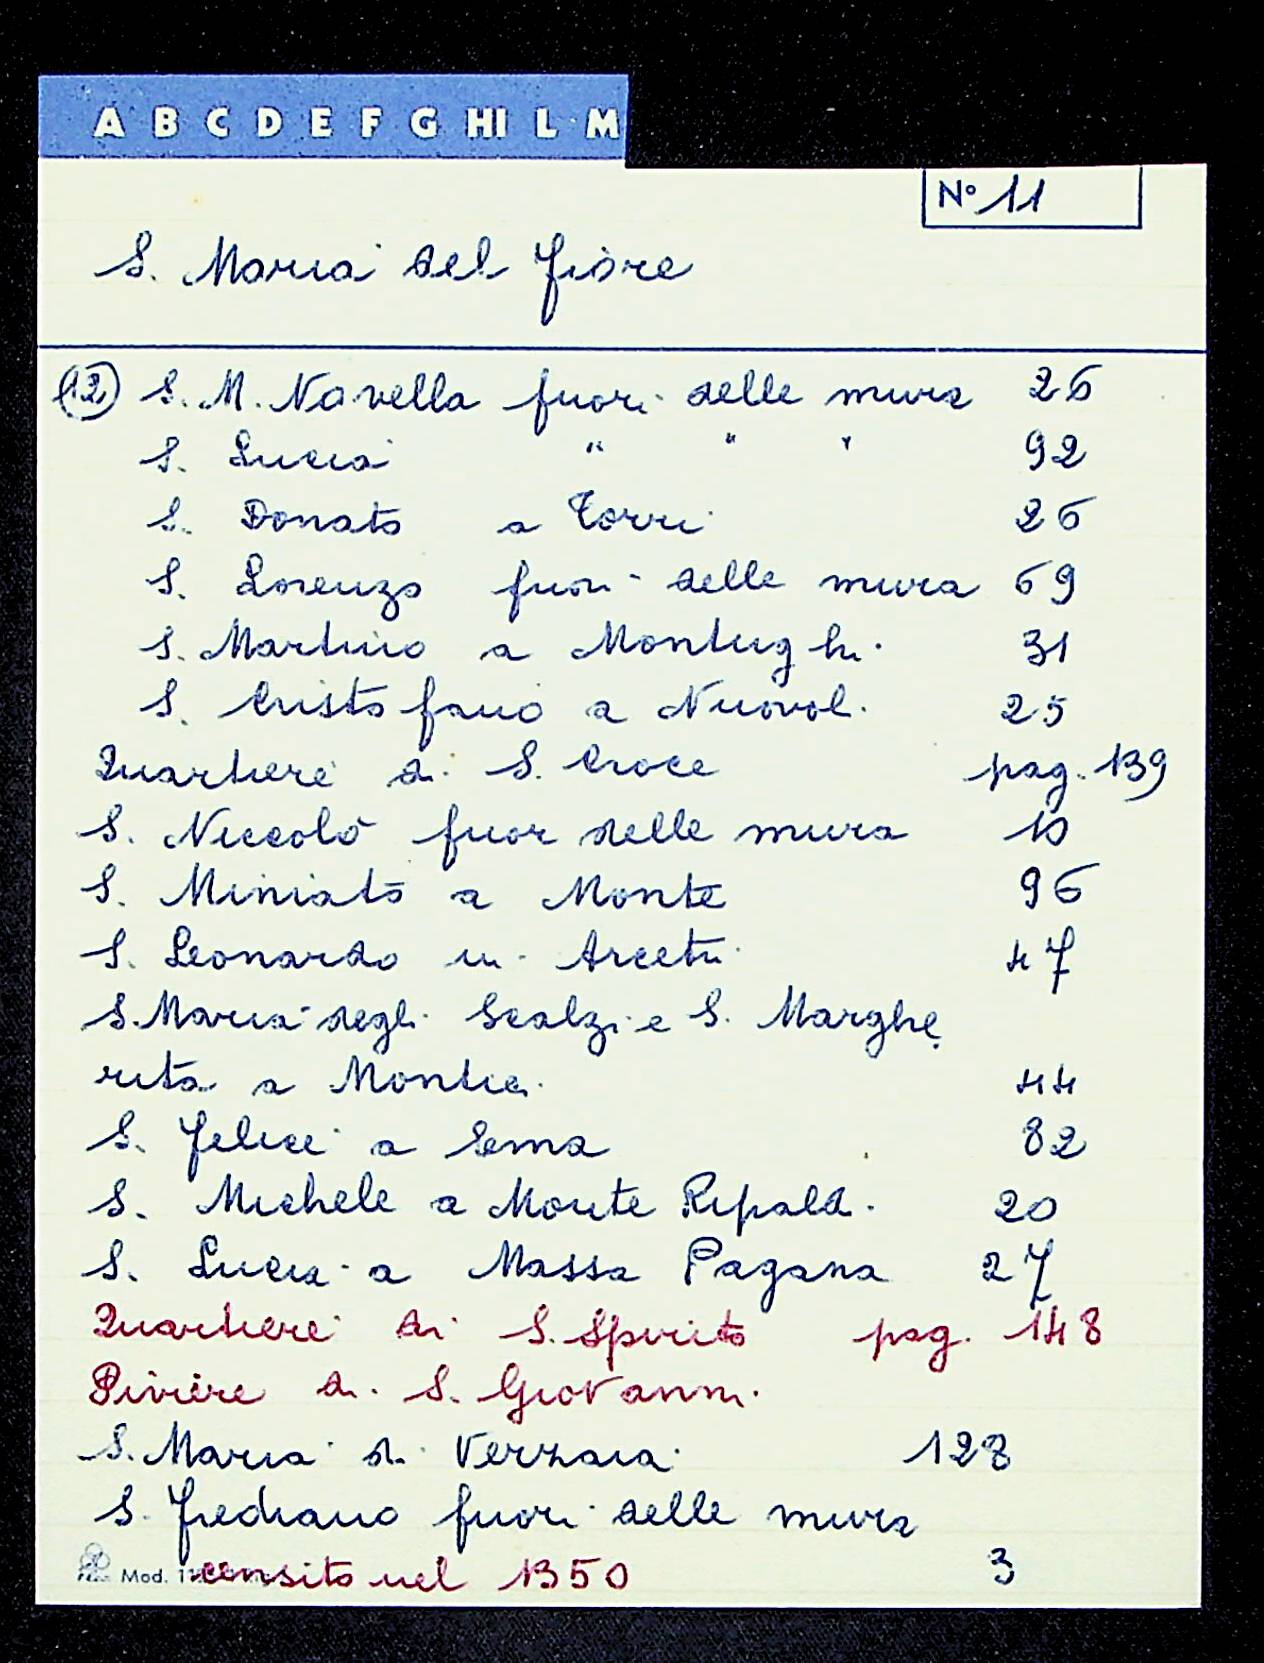 A B C D E F G HI L M
N° 11
S. Maria del Fiore
(12) S. M. Novella fuori delle mura 26
S. Lucia " " " 92
S. Donato a Torri 26
S. Lorenzo fuori delle mura 69
S. Martino a Montughi 31
S. Cristofano a Nuovol. 25
Quartiere di S. Croce pag. 139
S. Niccolò fuor delle mura 10
S. Miniato a Monte 96
S. Leonardo in Arcetri 47
S. Maria degli Scalzi e S. Marghe
rita a Montici 44
S. Felice a Ema 82
S. Michele a Monte Ripaldi 20
S. Lucia a Massa Pagana 27
Quartiere di S. Spirito pag. 148
Piviere di S. Giovanni
S. Maria di Verzaia 128
S. Frediano fuori delle mura
Mod. censito nel 1350 3